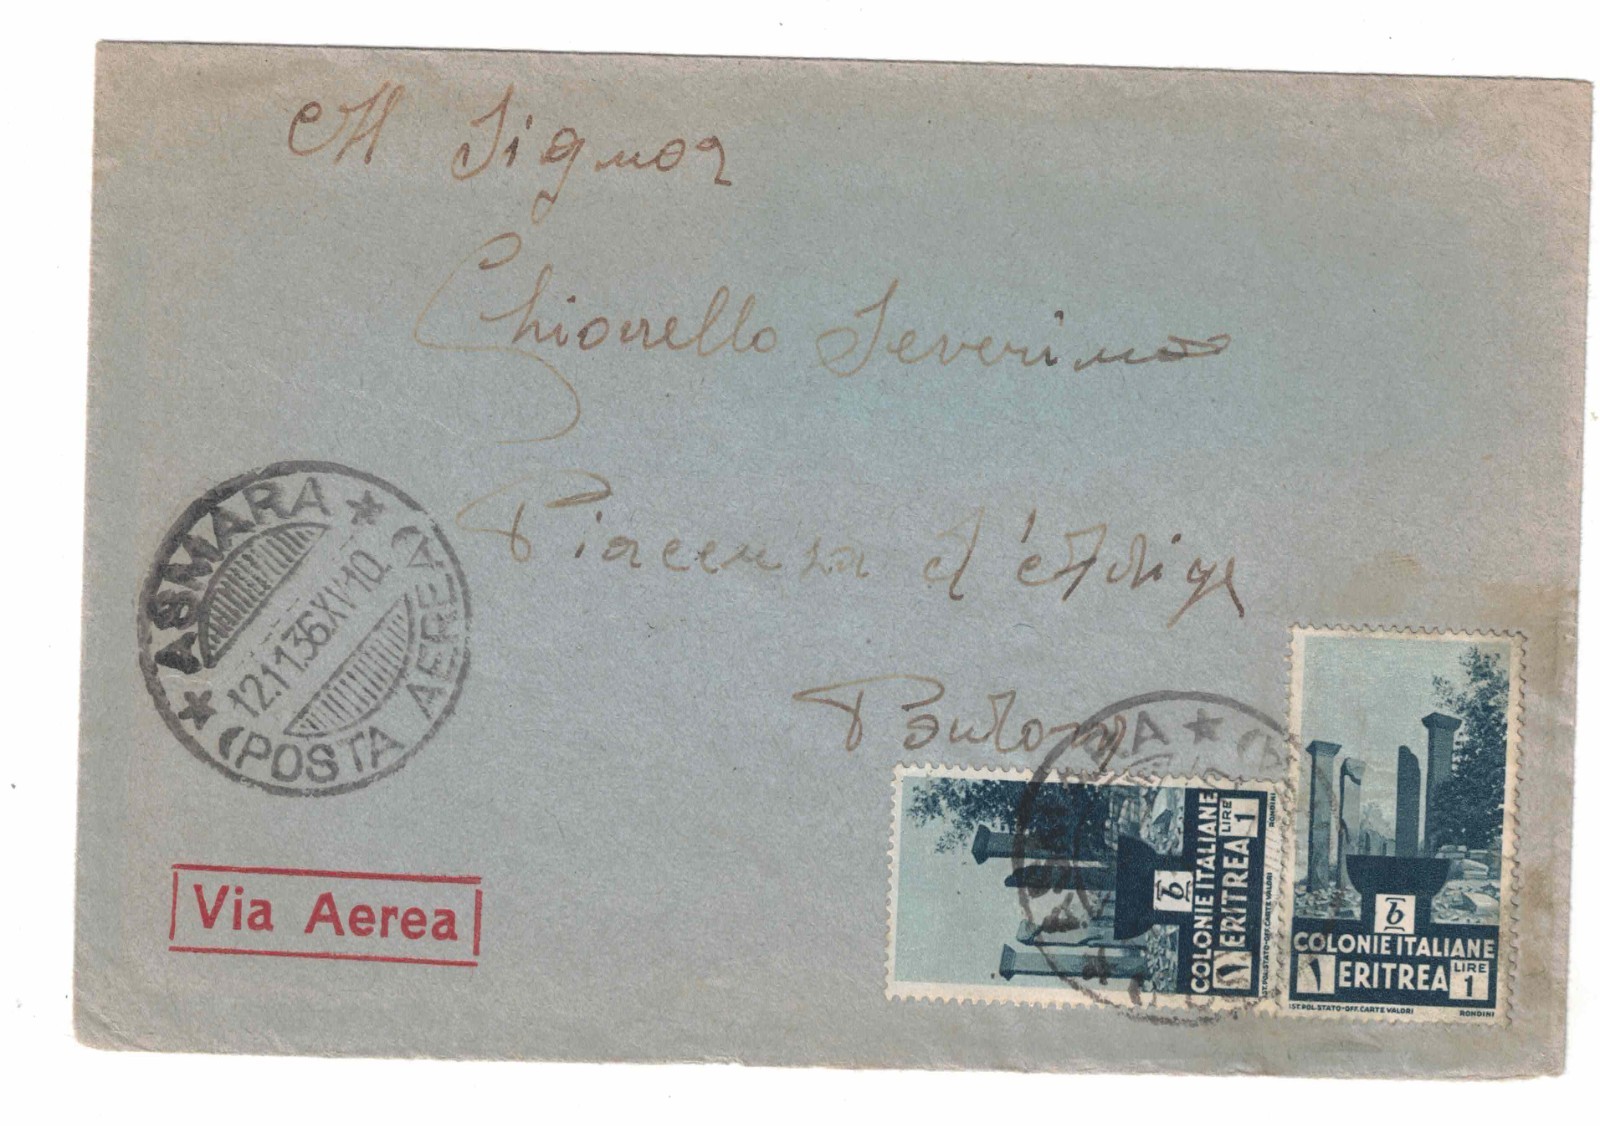 Al Signor
Chiorello Severino
Piacenza d'Adige
Padova
★ ASMARA ★
12.11.36.XV.10.
(POSTA AEREA)
Via Aerea
COLONIE ITALIANE
ERITREA
LIRE
1
b
IST.POL.STATO-OFF.CARTE VALORI
RONDINI
b
COLONIE ITALIANE
ERITREA
LIRE
1
IST.POL.STATO-OFF.CARTE VALORI
RONDINI